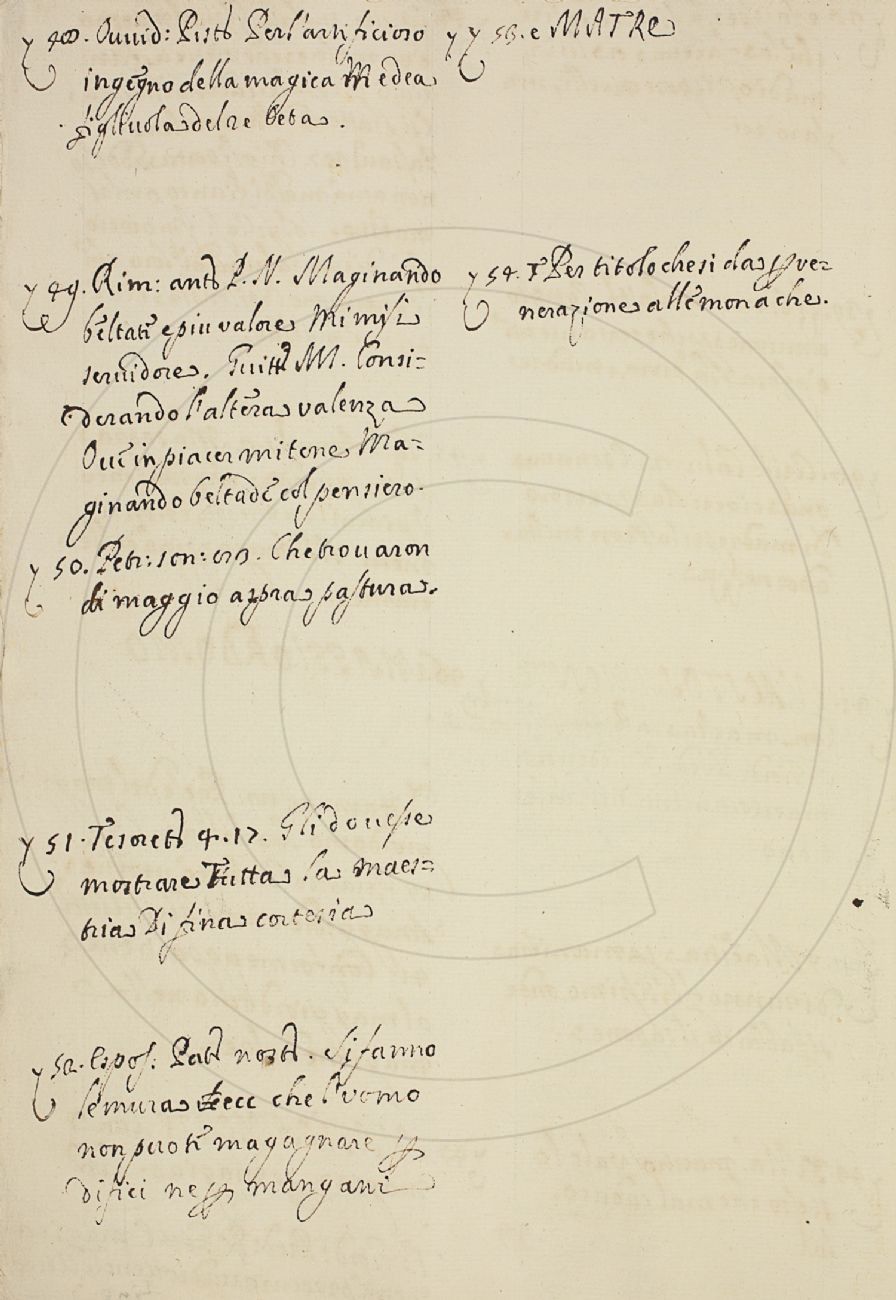 γ 48. Ouuid: Pist: Per l'artificioso
ingegno della magica Medea
figliuola del re Oeta.
γ 49. Rim: ant: P. N. Maginando
beltate e piu valore Mi misi
seruidore. Guitt: M. Consi=
derando l'altera valenza
Oue in piacer mi tene Ma=
ginando beltade col pensiero.
γ 50. Petr: son: Che trouaron
di maggio aspra pastura.
γ 51. Tesoret: 4. 17. Gli douesse
mostrare Tutta la maes=
tria Di fina cortesia
γ 52. Espos: Pat: nost: Si fanno
le mura ecc che l'uomo
non puote magagnare p
difici ne p mangani
γ γ 53. e MATRE
γ 54. Per titolo che si da p ve=
nerazione alle monache.